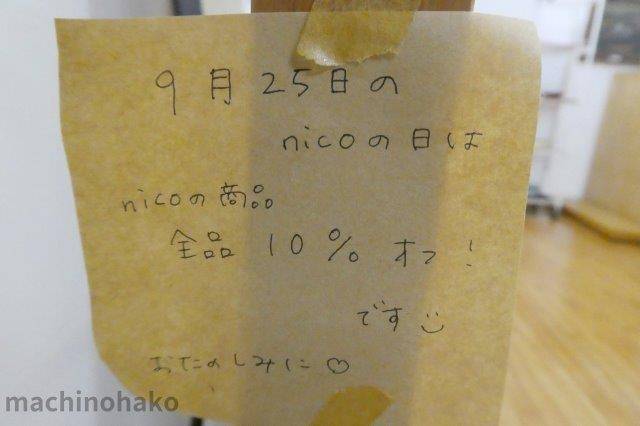 9月25日の
nicoの日は
nicoの商品
全品10%オフ!
です
おたのしみに♡
machinohako